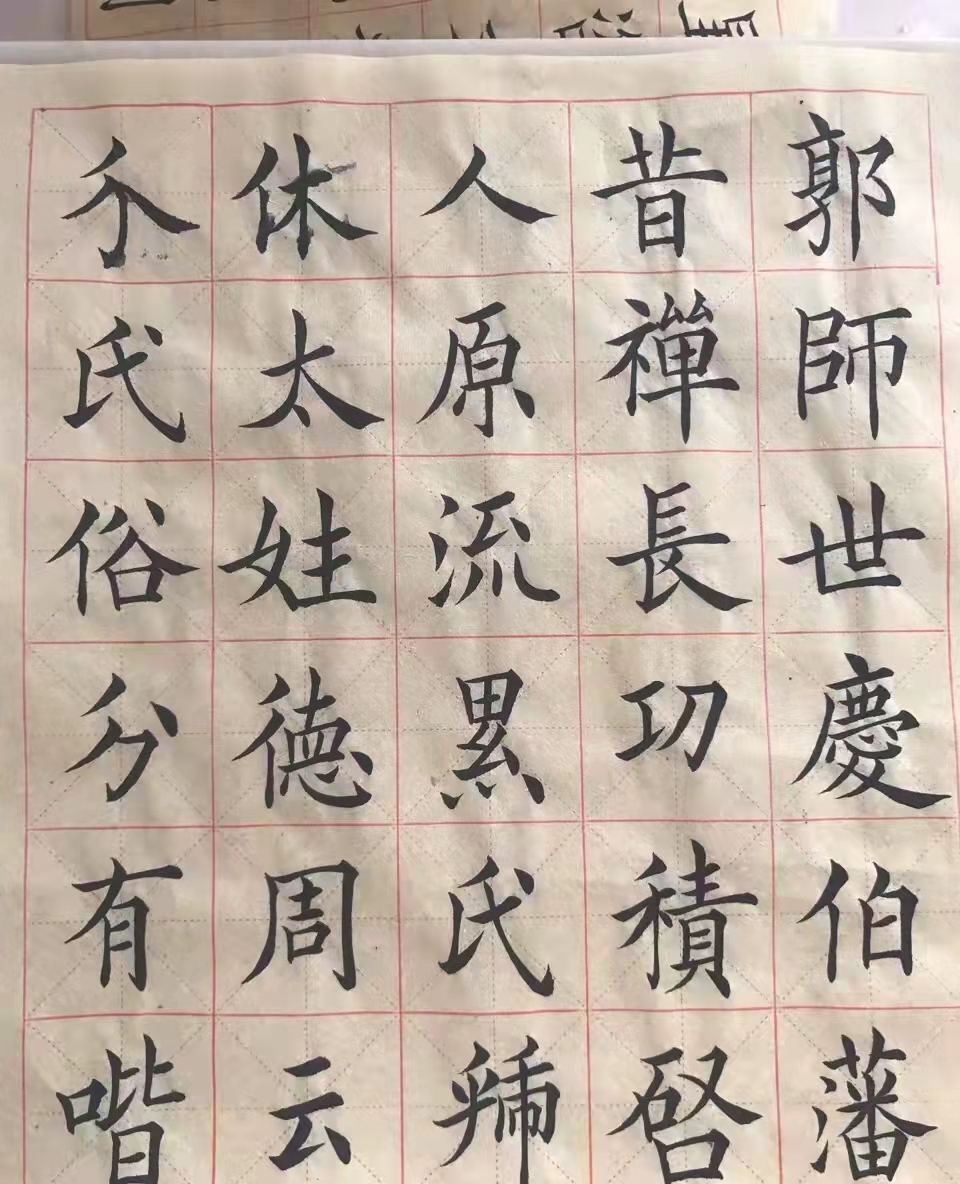 郭師世慶伯藩
昔禪長功積啓
人原流累氏
休太姓德周云
尒氏俗分有喈